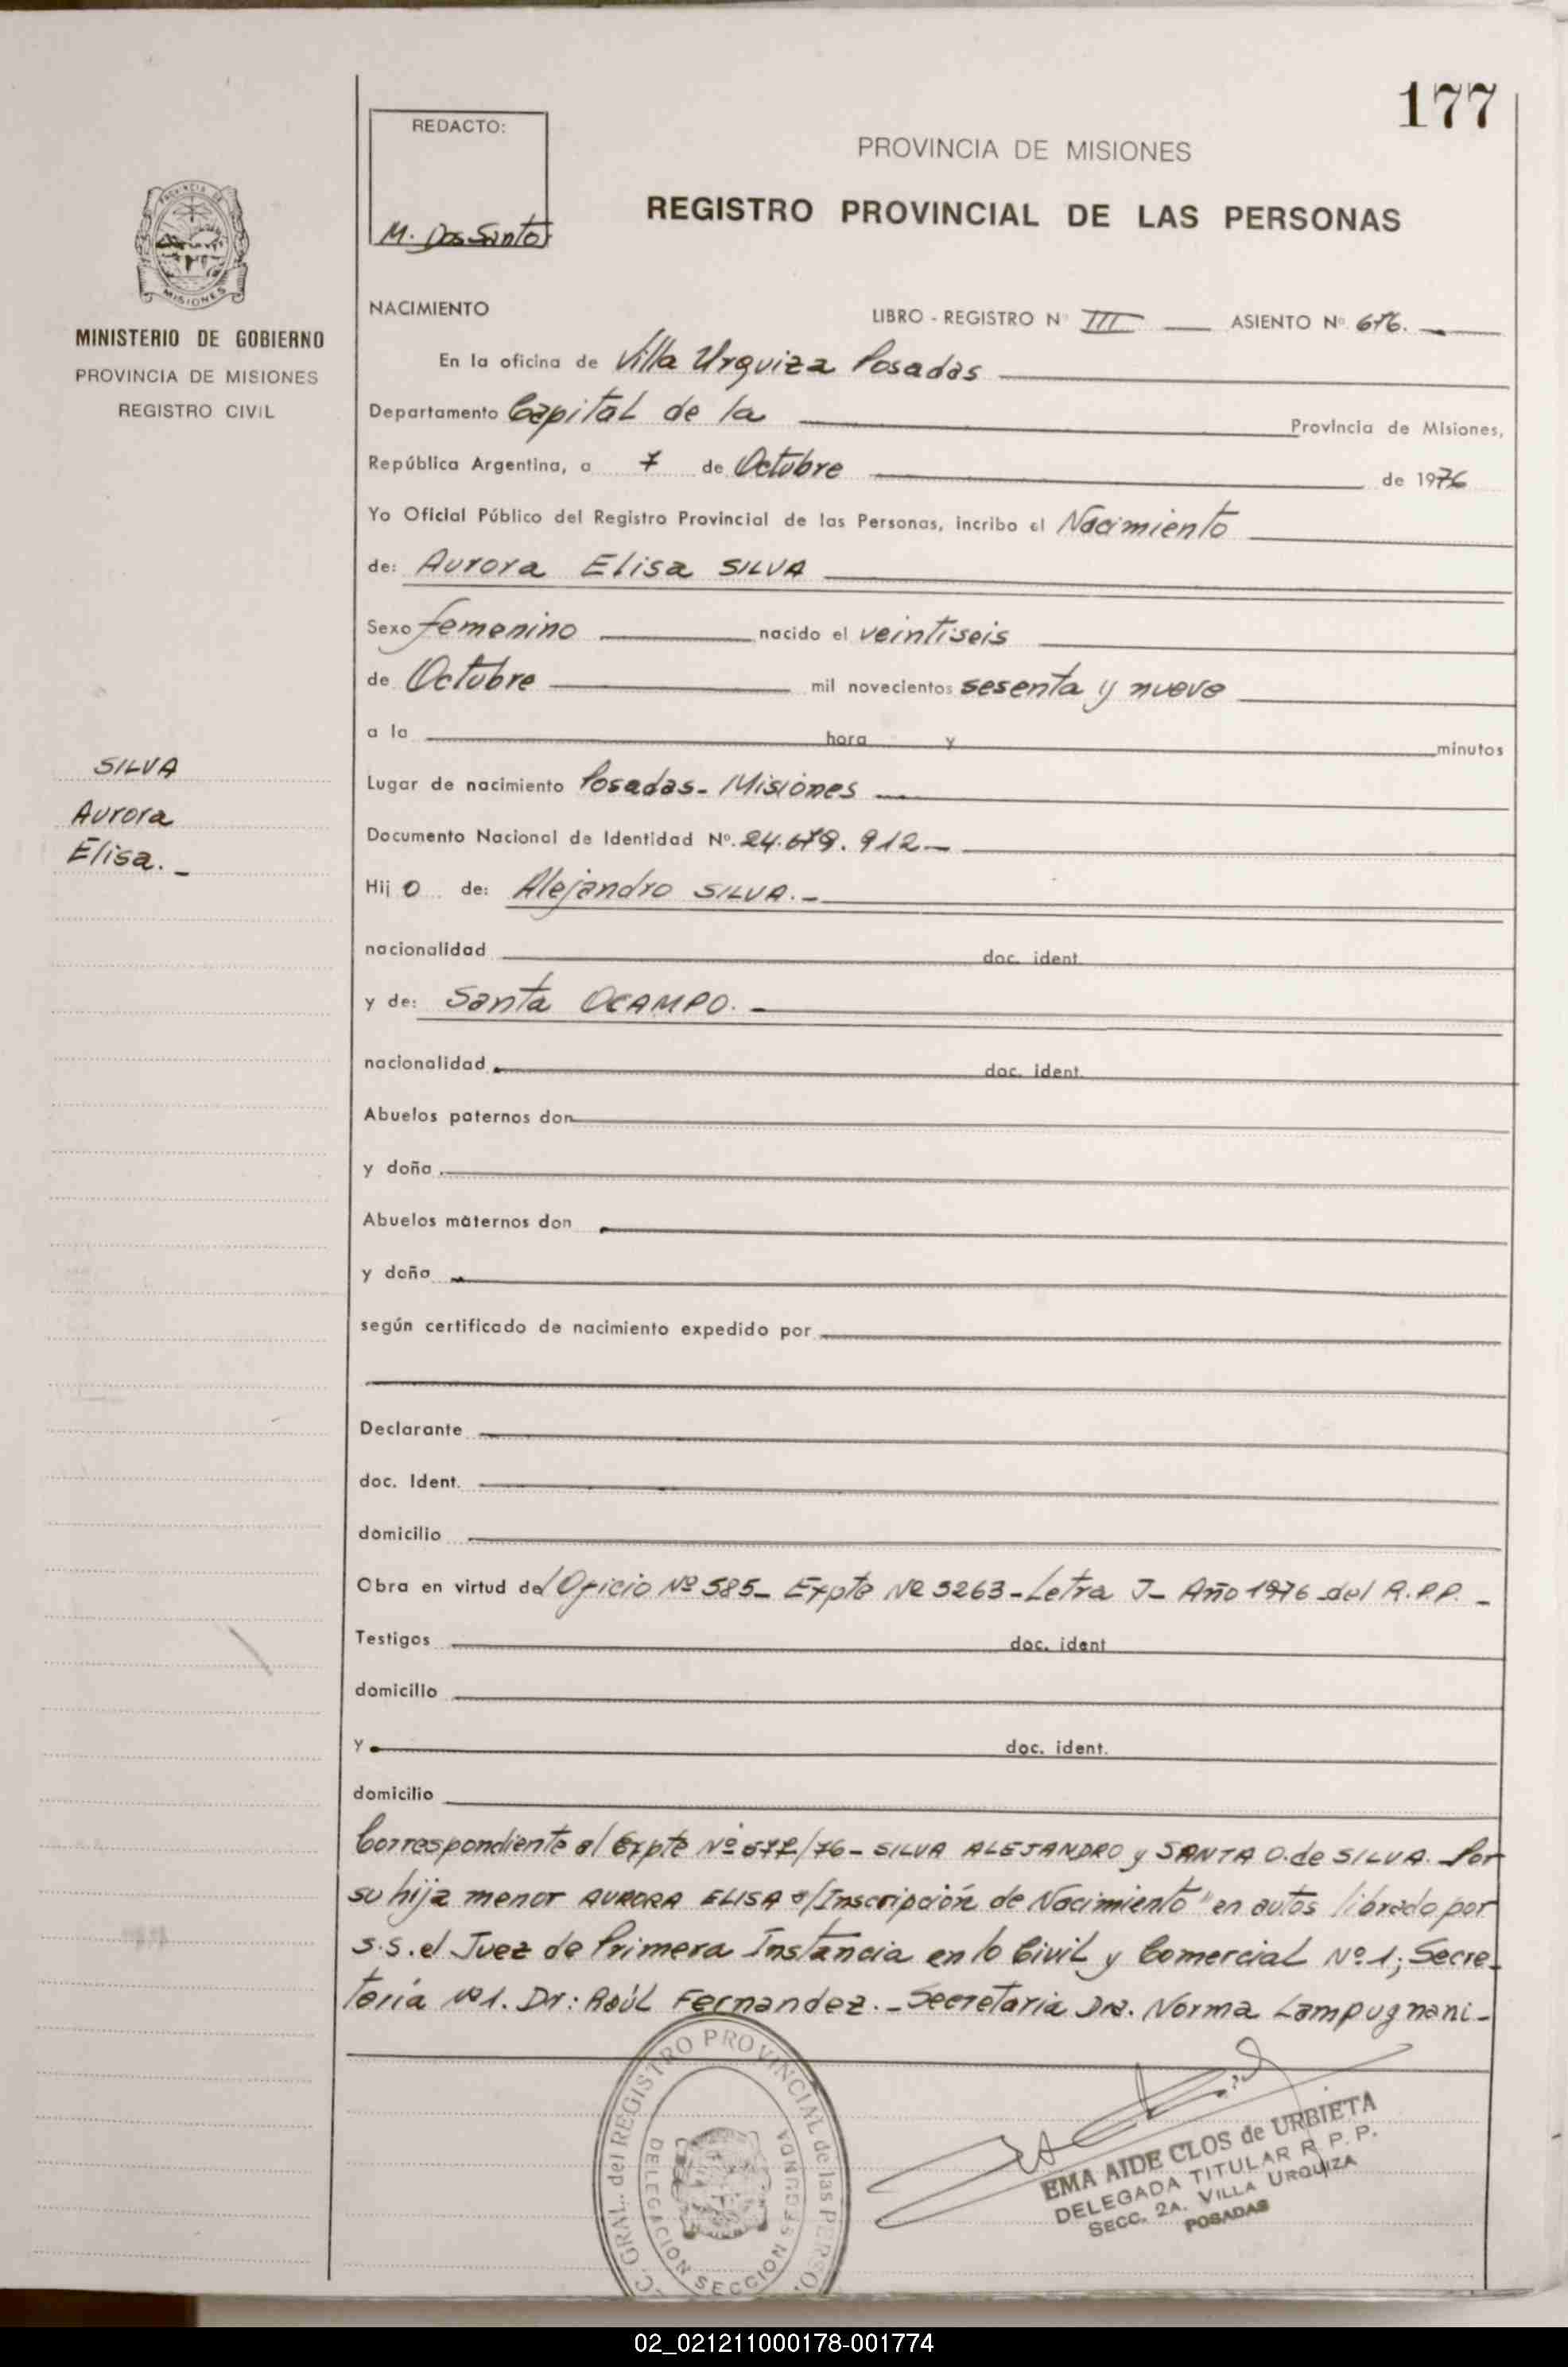 177
REDACTO:
M. Dos Santos
PROVINCIA DE MISIONES
REGISTRO PROVINCIAL DE LAS PERSONAS
PROVINCIA DE
MISIONES
MINISTERIO DE GOBIERNO
PROVINCIA DE MISIONES
REGISTRO CIVIL
NACIMIENTO
LIBRO - REGISTRO Nº III ASIENTO Nº 676.
En la oficina de Villa Urquiza Posadas
Departamento Capital de la Provincia de Misiones,
República Argentina, a 7 de Octubre de 1976
Yo Oficial Público del Registro Provincial de las Personas, incribo el Nacimiento
de: Aurora Elisa SILVA
Sexo femenino nacido el veintiseis
de Octubre mil novecientos sesenta y nueve
a la hora y minutos
SILVA
Aurora
Elisa.-
Lugar de nacimiento Posadas- Misiones
Documento Nacional de Identidad Nº. 24.679.912.-
Hij o de: Alejandro SILVA.-
nacionalidad doc. ident.
y de: Santa OCAMPO.-
nacionalidad doc. ident.
Abuelos paternos don
y doña
Abuelos maternos don
y doña
según certificado de nacimiento expedido por
Declarante
doc. Ident.
domicilio
Obra en virtud del Oficio Nº 585- Expte Nº 3263-Letra J- Año 1976 del R.P.P.-
Testigos doc. ident
domicilio
y doc. ident.
domicilio
Correspondiente al Expte Nº /76- SILVA ALEJANDRO y SANTA O. de SILVA. Por
su hija menor AURORA ELISA s/Inscripción de Nacimiento" en autos librado por
s.s. el Juez de Primera Instancia en lo Civil y Comercial Nº 1; Secre-
taría Nº1. Dr: Raúl Fernandez.-Secretaria Dra. Norma Lampugnani-
C. GRAL. del REGISTRO PROVINCIAL de las PERSO
DELEGACION SECCION SEGUNDA
EMA AIDE CLOS de URBIETA
DELEGADA TITULAR R. P. P.
SECC. 2A. VILLA URQUIZA
POSADAS
02_021211000178-001774